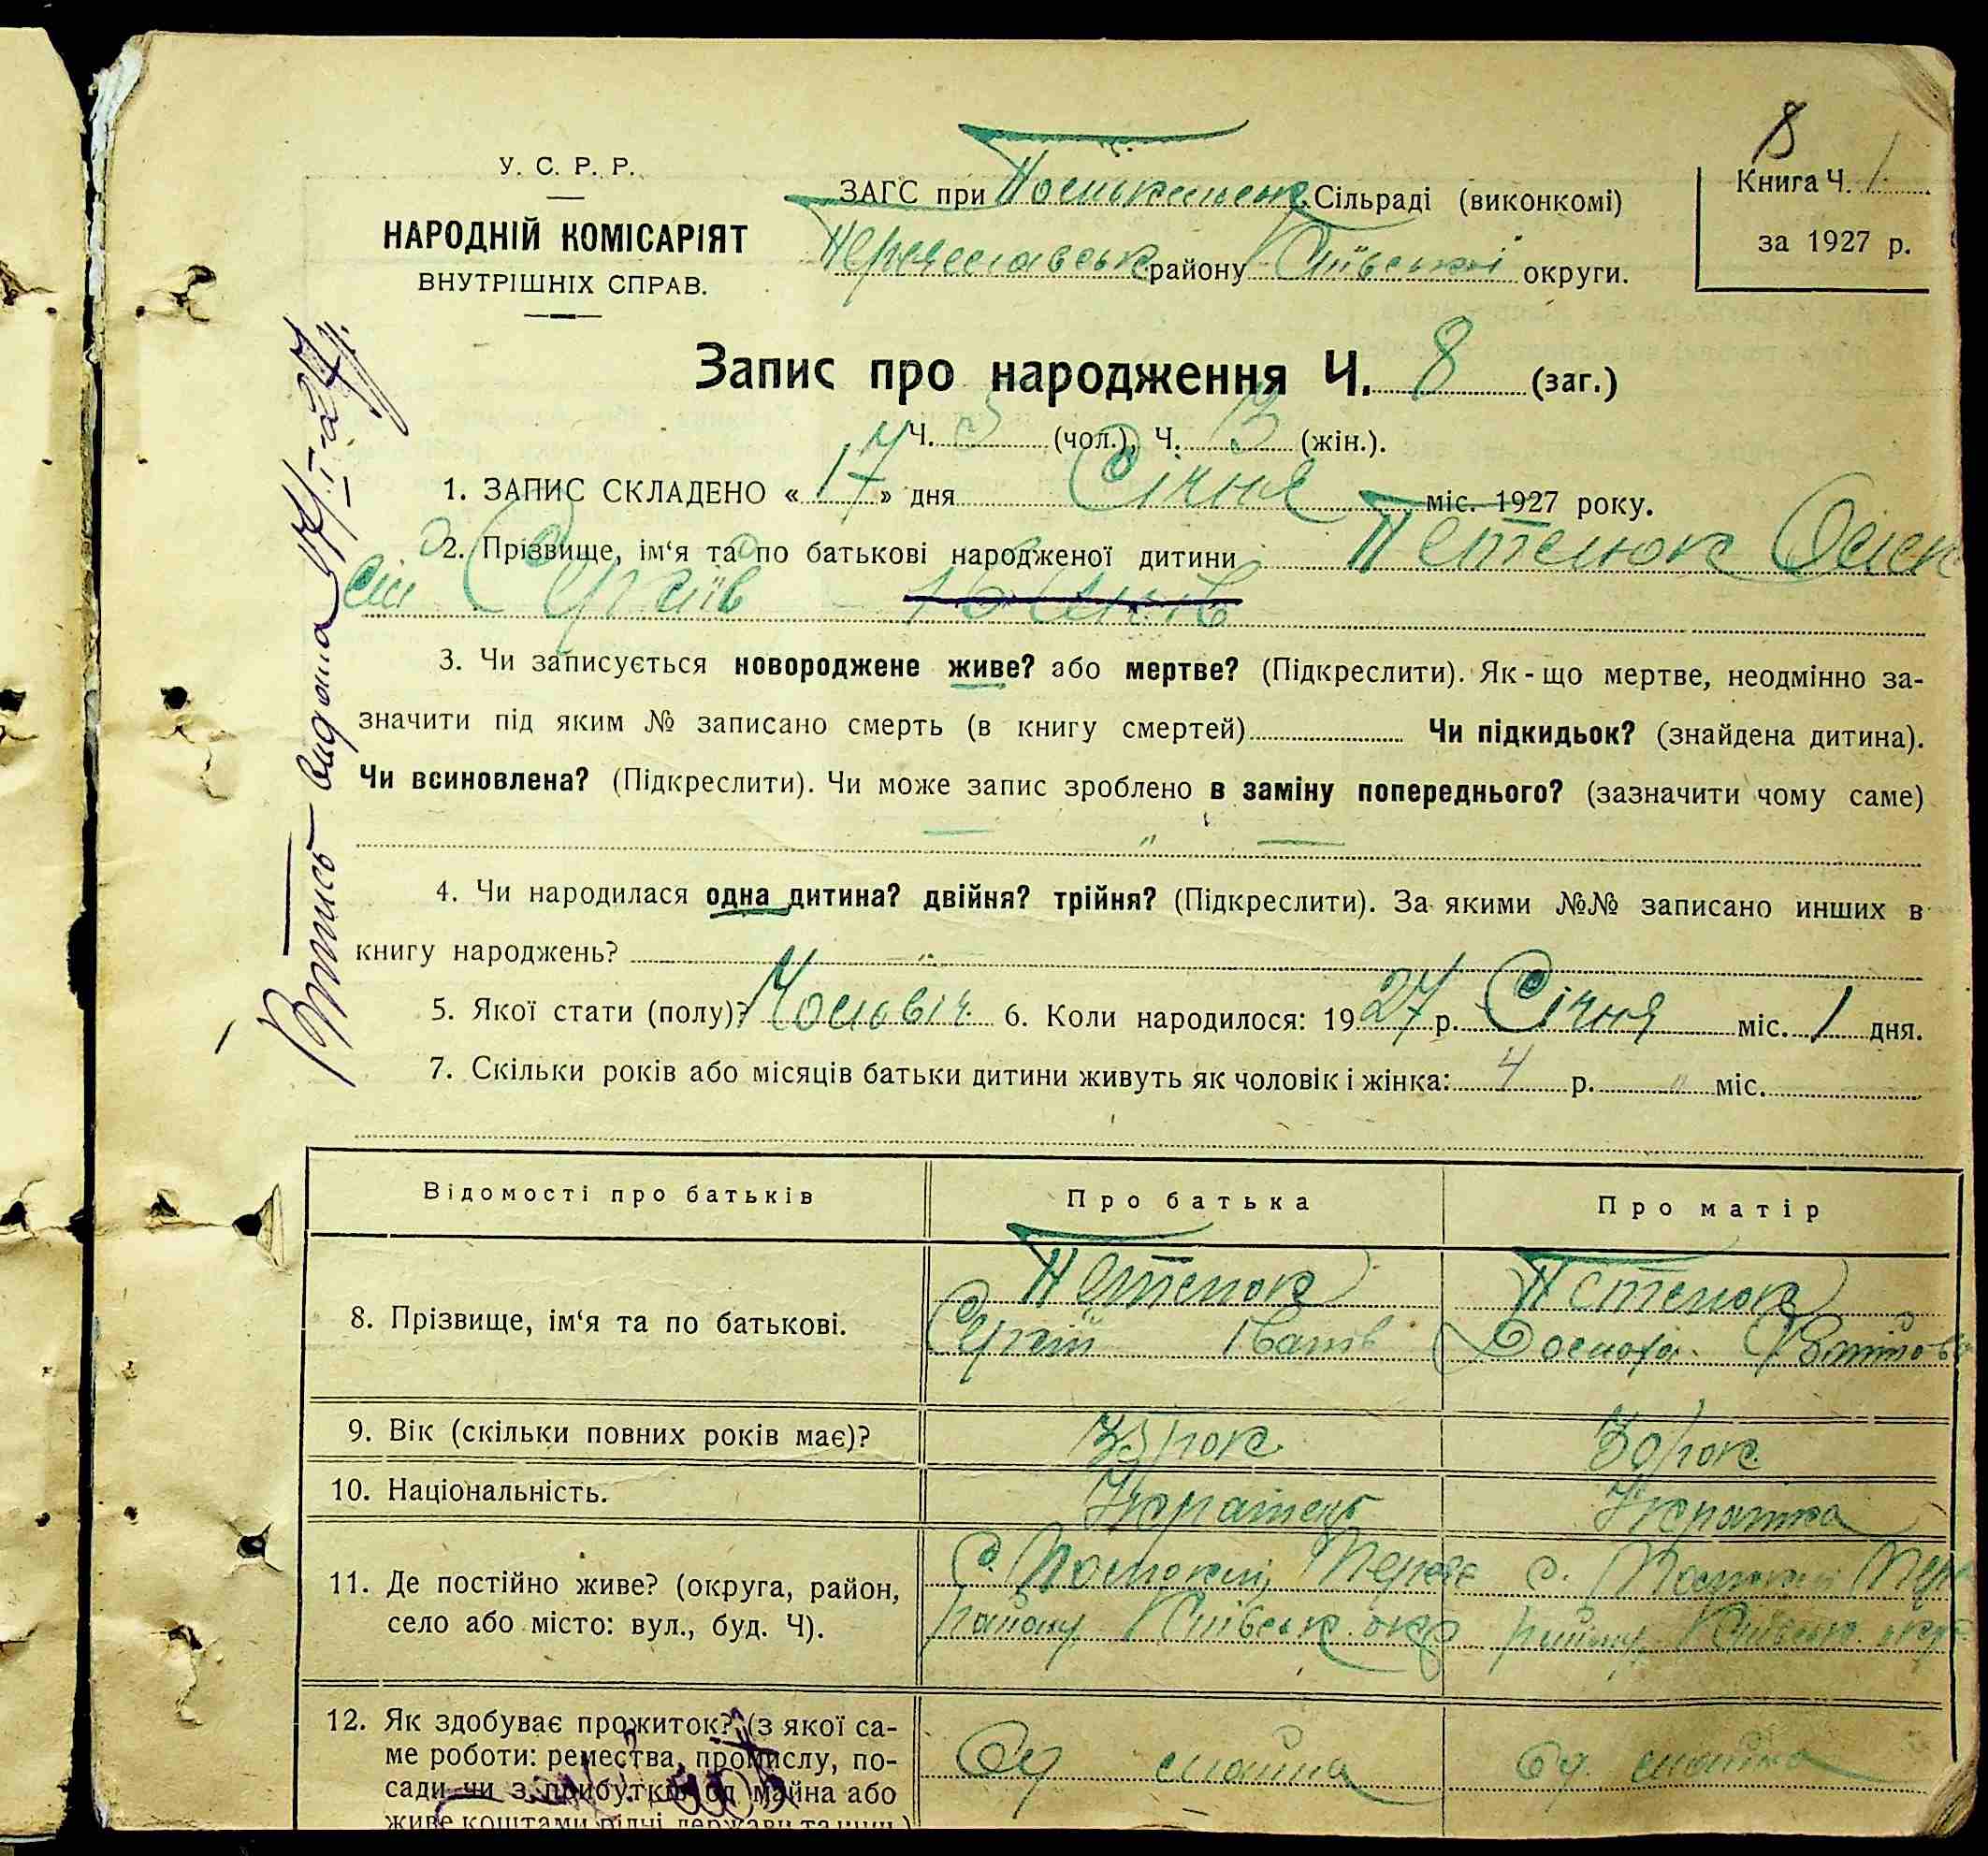 8
У. С. Р. Р.
НАРОДНІЙ КОМІСАРІЯТ
ВНУТРІШНІХ СПРАВ.
ЗАГС при Сільраді (виконкомі)
Переяславськ району Київської округи.
Книга Ч. 1
за 1927 р.
Запис про народження Ч. 8 (заг.)
Ч. (чол.), Ч. 3 (жін.).
1. ЗАПИС СКЛАДЕНО «17» дня Січня міс. 1927 року.
2. Прізвище, ім‘я та по батькові народженої дитини Петелюк Олек
сій Сергіїв
3. Чи записується новороджене живе? або мертве? (Підкреслити). Як-що мертве, неодмінно за-
значити під яким № записано смерть (в книгу смертей) Чи підкидьок? (знайдена дитина).
Чи всиновлена? (Підкреслити). Чи може запис зроблено в заміну попереднього? (зазначити чому саме)
— " —
4. Чи народилася одна дитина? двійня? трійня? (Підкреслити). За якими №№ записано инших в
книгу народжень? "
5. Якої стати (полу)? Чоловіч. 6. Коли народилося: 1927 р. Січня міс. 1 дня.
7. Скільки років або місяців батьки дитини живуть як чоловік і жінка: 4 р. " міс.
Відомості про батьків Про батька Про матір
8. Прізвище, ім‘я та по батькові. Петелюк Петелюк
Сергій Іванів
9. Вік (скільки повних років має)? 33 рок. 30 рок.
10. Національність. Українець Українка
11. Де постійно живе? (округа, район, с. с.
село або місто: вул., буд. Ч). району Київськ. окр району Київськ. окр
12. Як здобуває прожиток? (з якої са-
ме роботи: ремества, промислу, по-
сади чи з прибутків од майна або
живе коштами рідні, держави та инш.)
Випись видана 17/I-27 р.